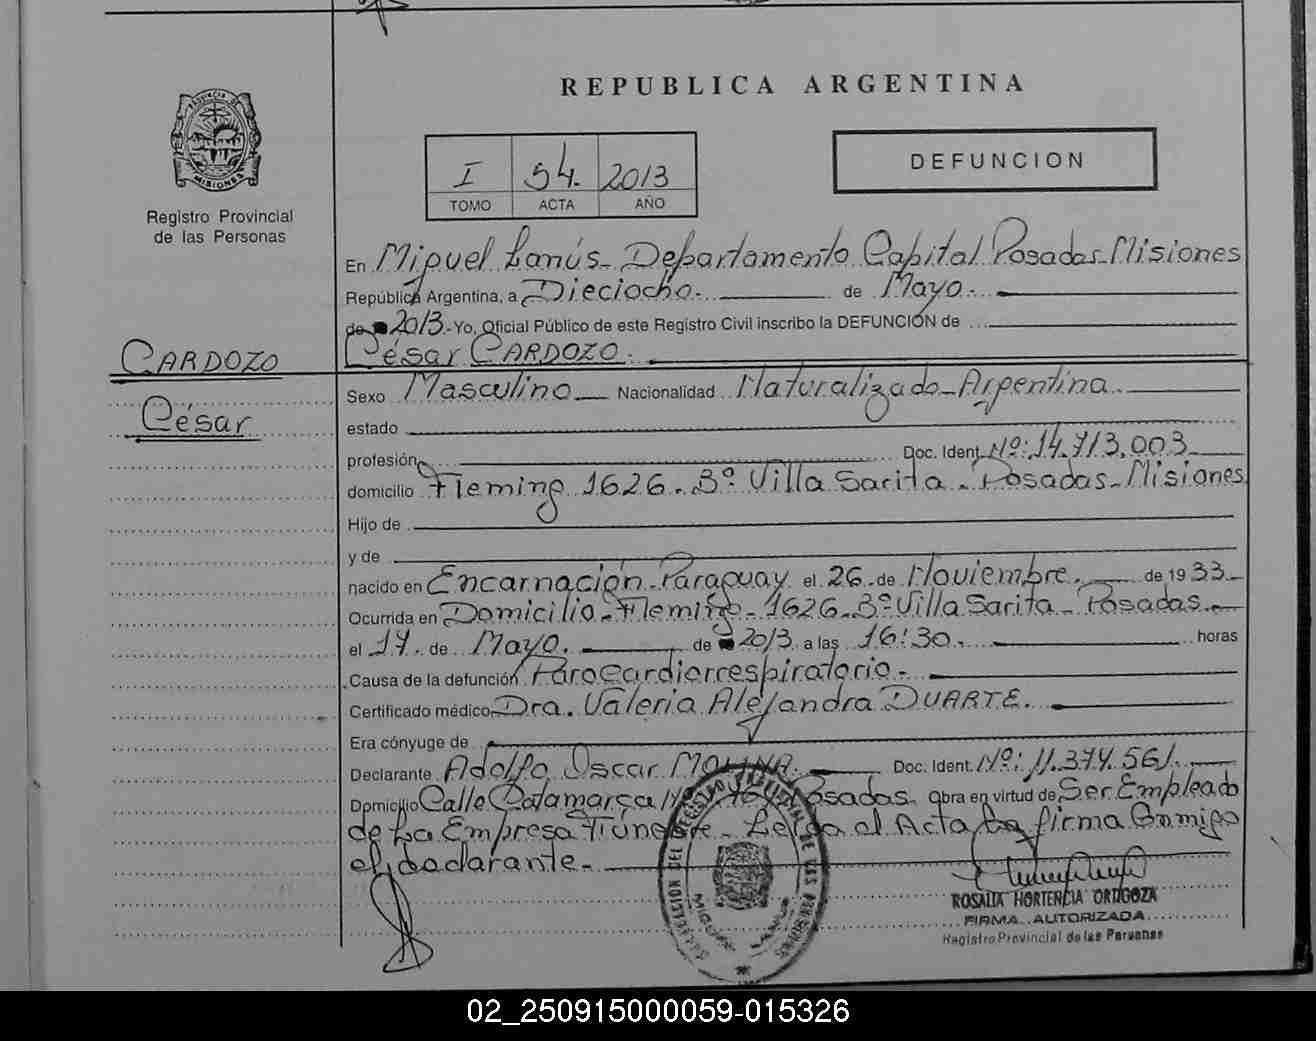 REPUBLICA ARGENTINA
PROVINCIA DE
MISIONES
Registro Provincial
de las Personas
I 54. 2013
TOMO ACTA AÑO
DEFUNCION
En Miguel Lanús - Departamento Capital Posadas - Misiones
República Argentina, a Dieciocho. de Mayo.
de 2013.- Yo, Oficial Público de este Registro Civil inscribo la DEFUNCIÓN de
César CARDOZO.
CARDOZO
César
Sexo Masculino Nacionalidad Naturalizado - Argentina.
estado
profesión Doc. Ident. Nº: 14.713.003
domicilio Fleming 1626 - Bº Villa Sarita - Posadas - Misiones
Hijo de
y de
nacido en Encarnación - Paraguay el 26 de Noviembre. de 1933
Ocurrida en Domicilio - Fleming - 1626 - Bº Villa Sarita - Posadas.
el 17. de Mayo. de 2013 a las 16:30. horas
Causa de la defunción Parocardiorrespiratorio.
Certificado médico Dra. Valeria Alejandra DUARTE.
Era cónyuge de
Declarante Adolfo Oscar MOLINA. Doc. Ident. Nº: 11.374.561.
Domicilio Calle Catamarca Posadas. Obra en virtud de Ser Empleado
de La Empresa Fúnebre - Leída el Acta La firma Conmigo
el declarante.
DELEGACION DEL REGISTRO PROVINCIAL DE LAS PERSONAS
MIGUEL LANUS
ROSALIA HORTENCIA ORTIGOZA
FIRMA AUTORIZADA
Registro Provincial de las Personas
02_250915000059-015326